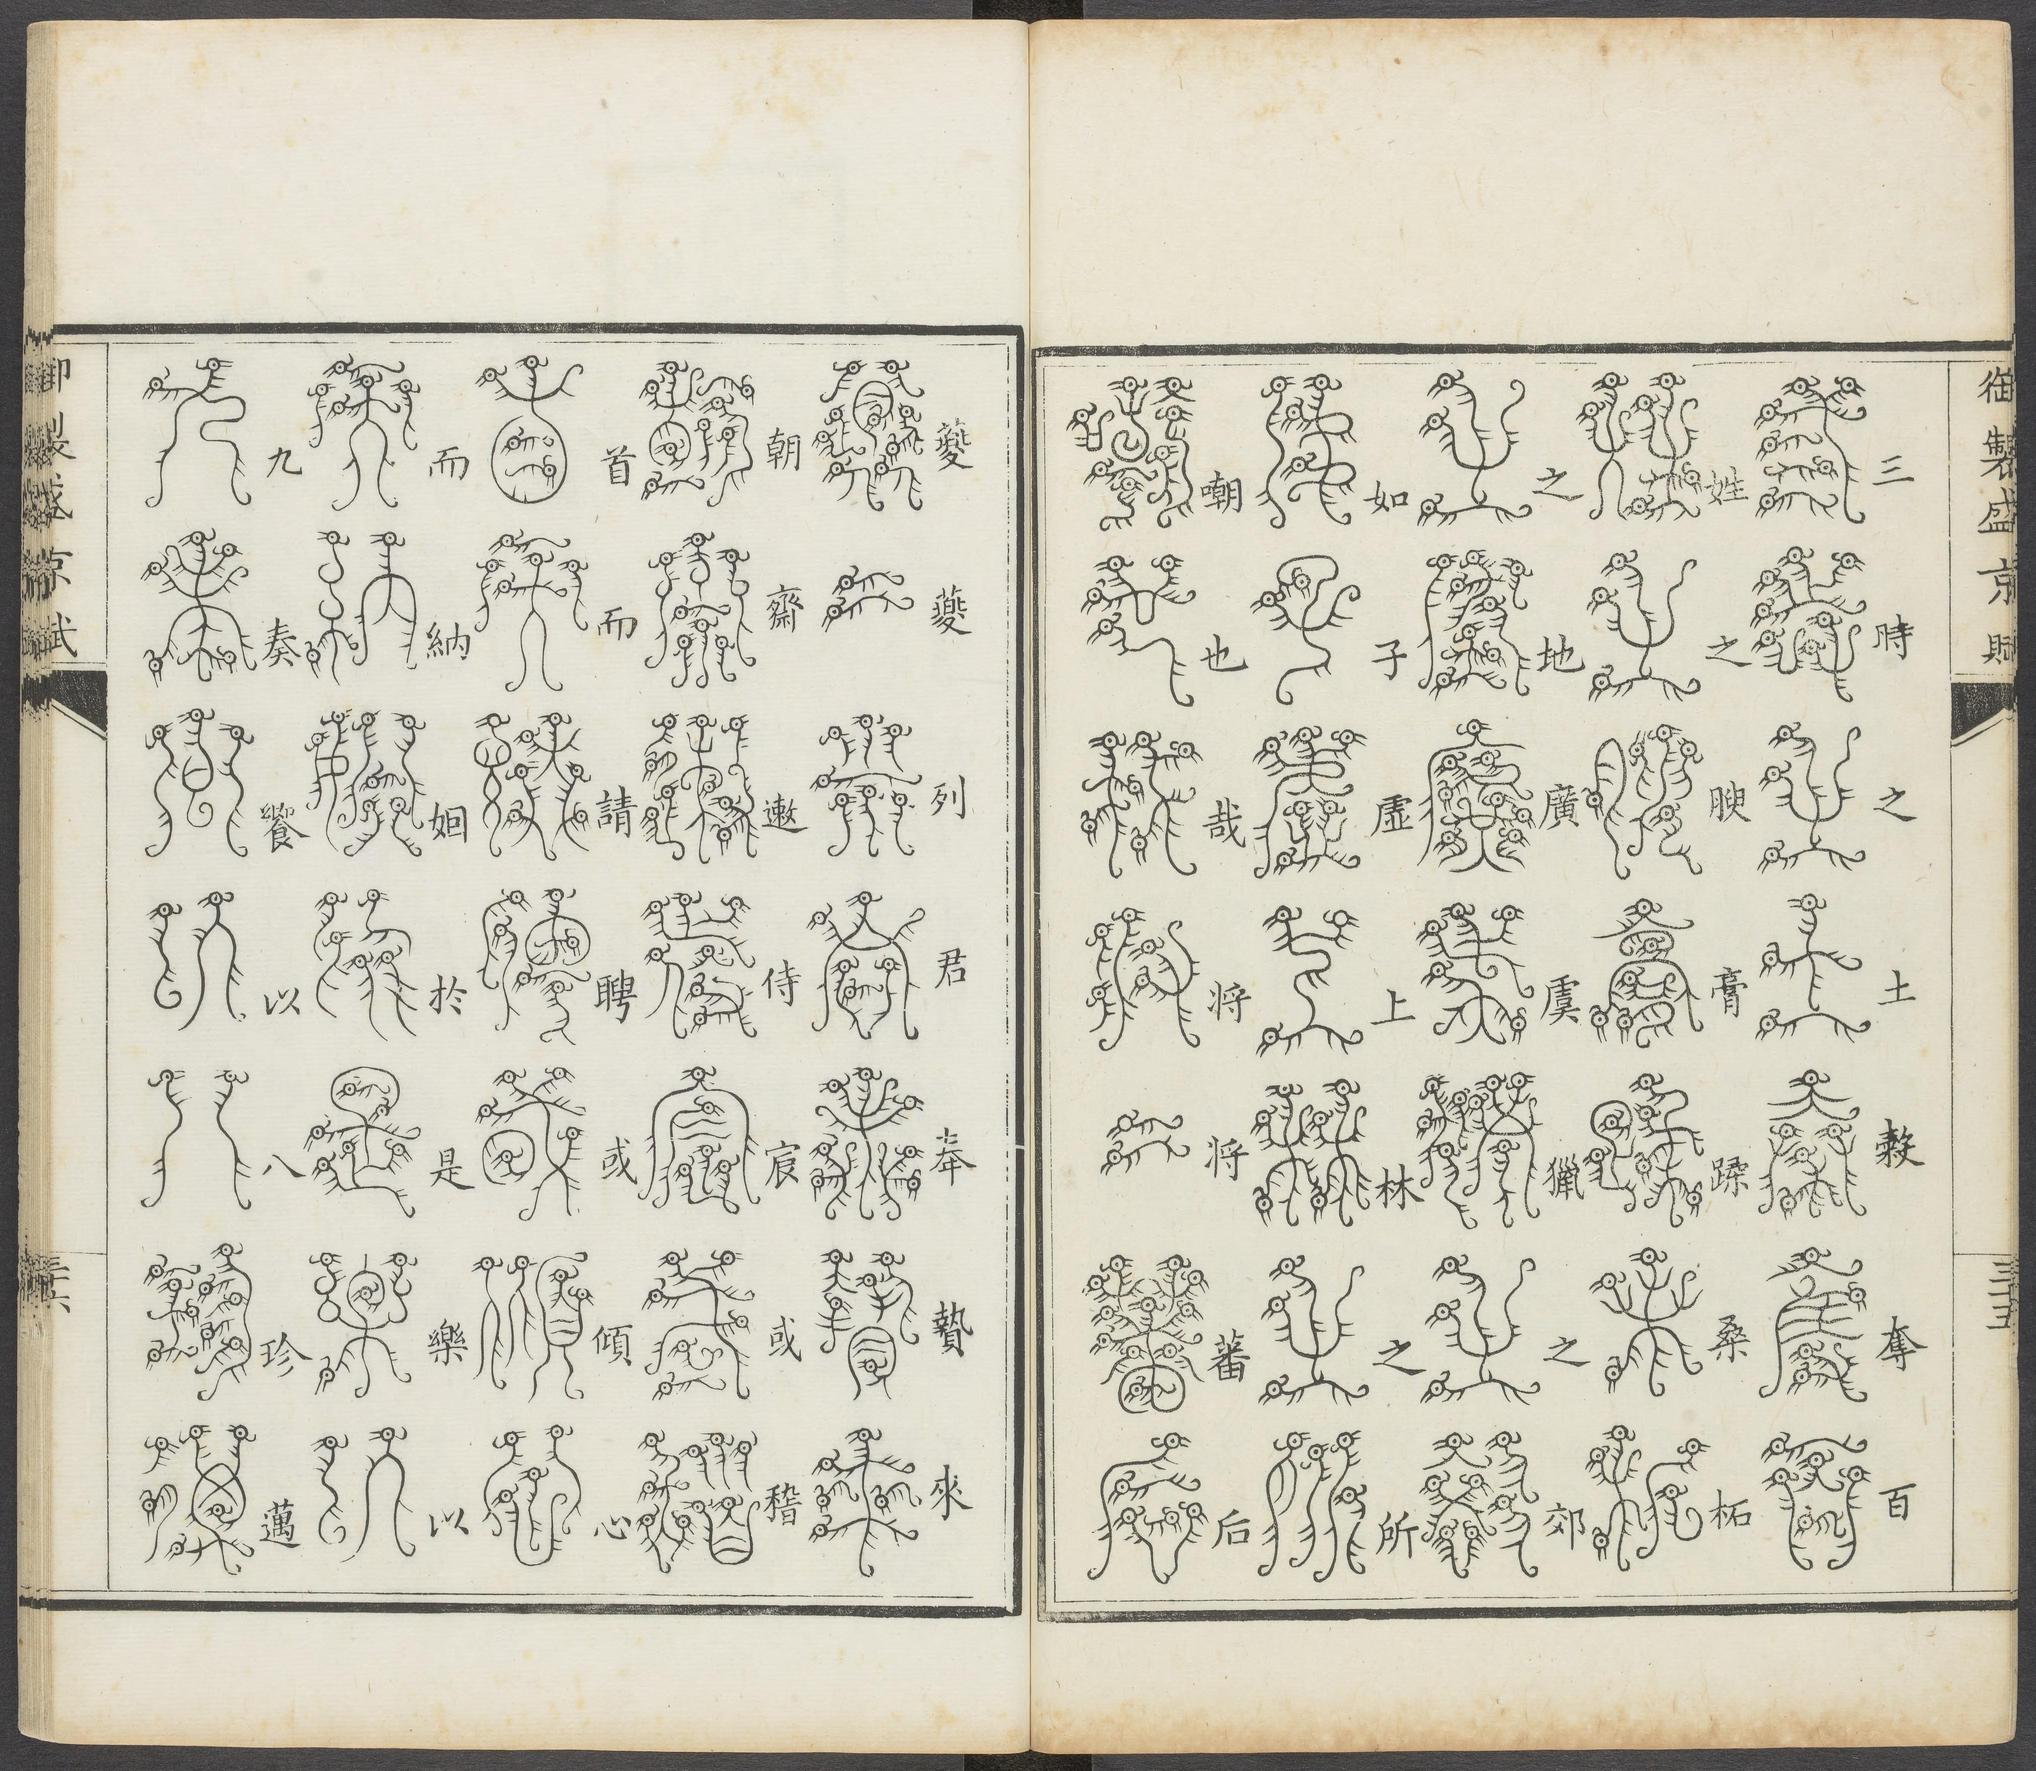 御製盛京賦 三十五
三時之土穀奪百
姓之腴膏蹂桑柘
之地廣虞獵之郊
如子虛上林之所
嘲也哉将将蕃后
夔夔列君奉贄來
朝齋遬侍宸或稽
首而請聘或傾心
而納姻於是樂以
九奏饗以八珍邁
御製盛京賦 三十六